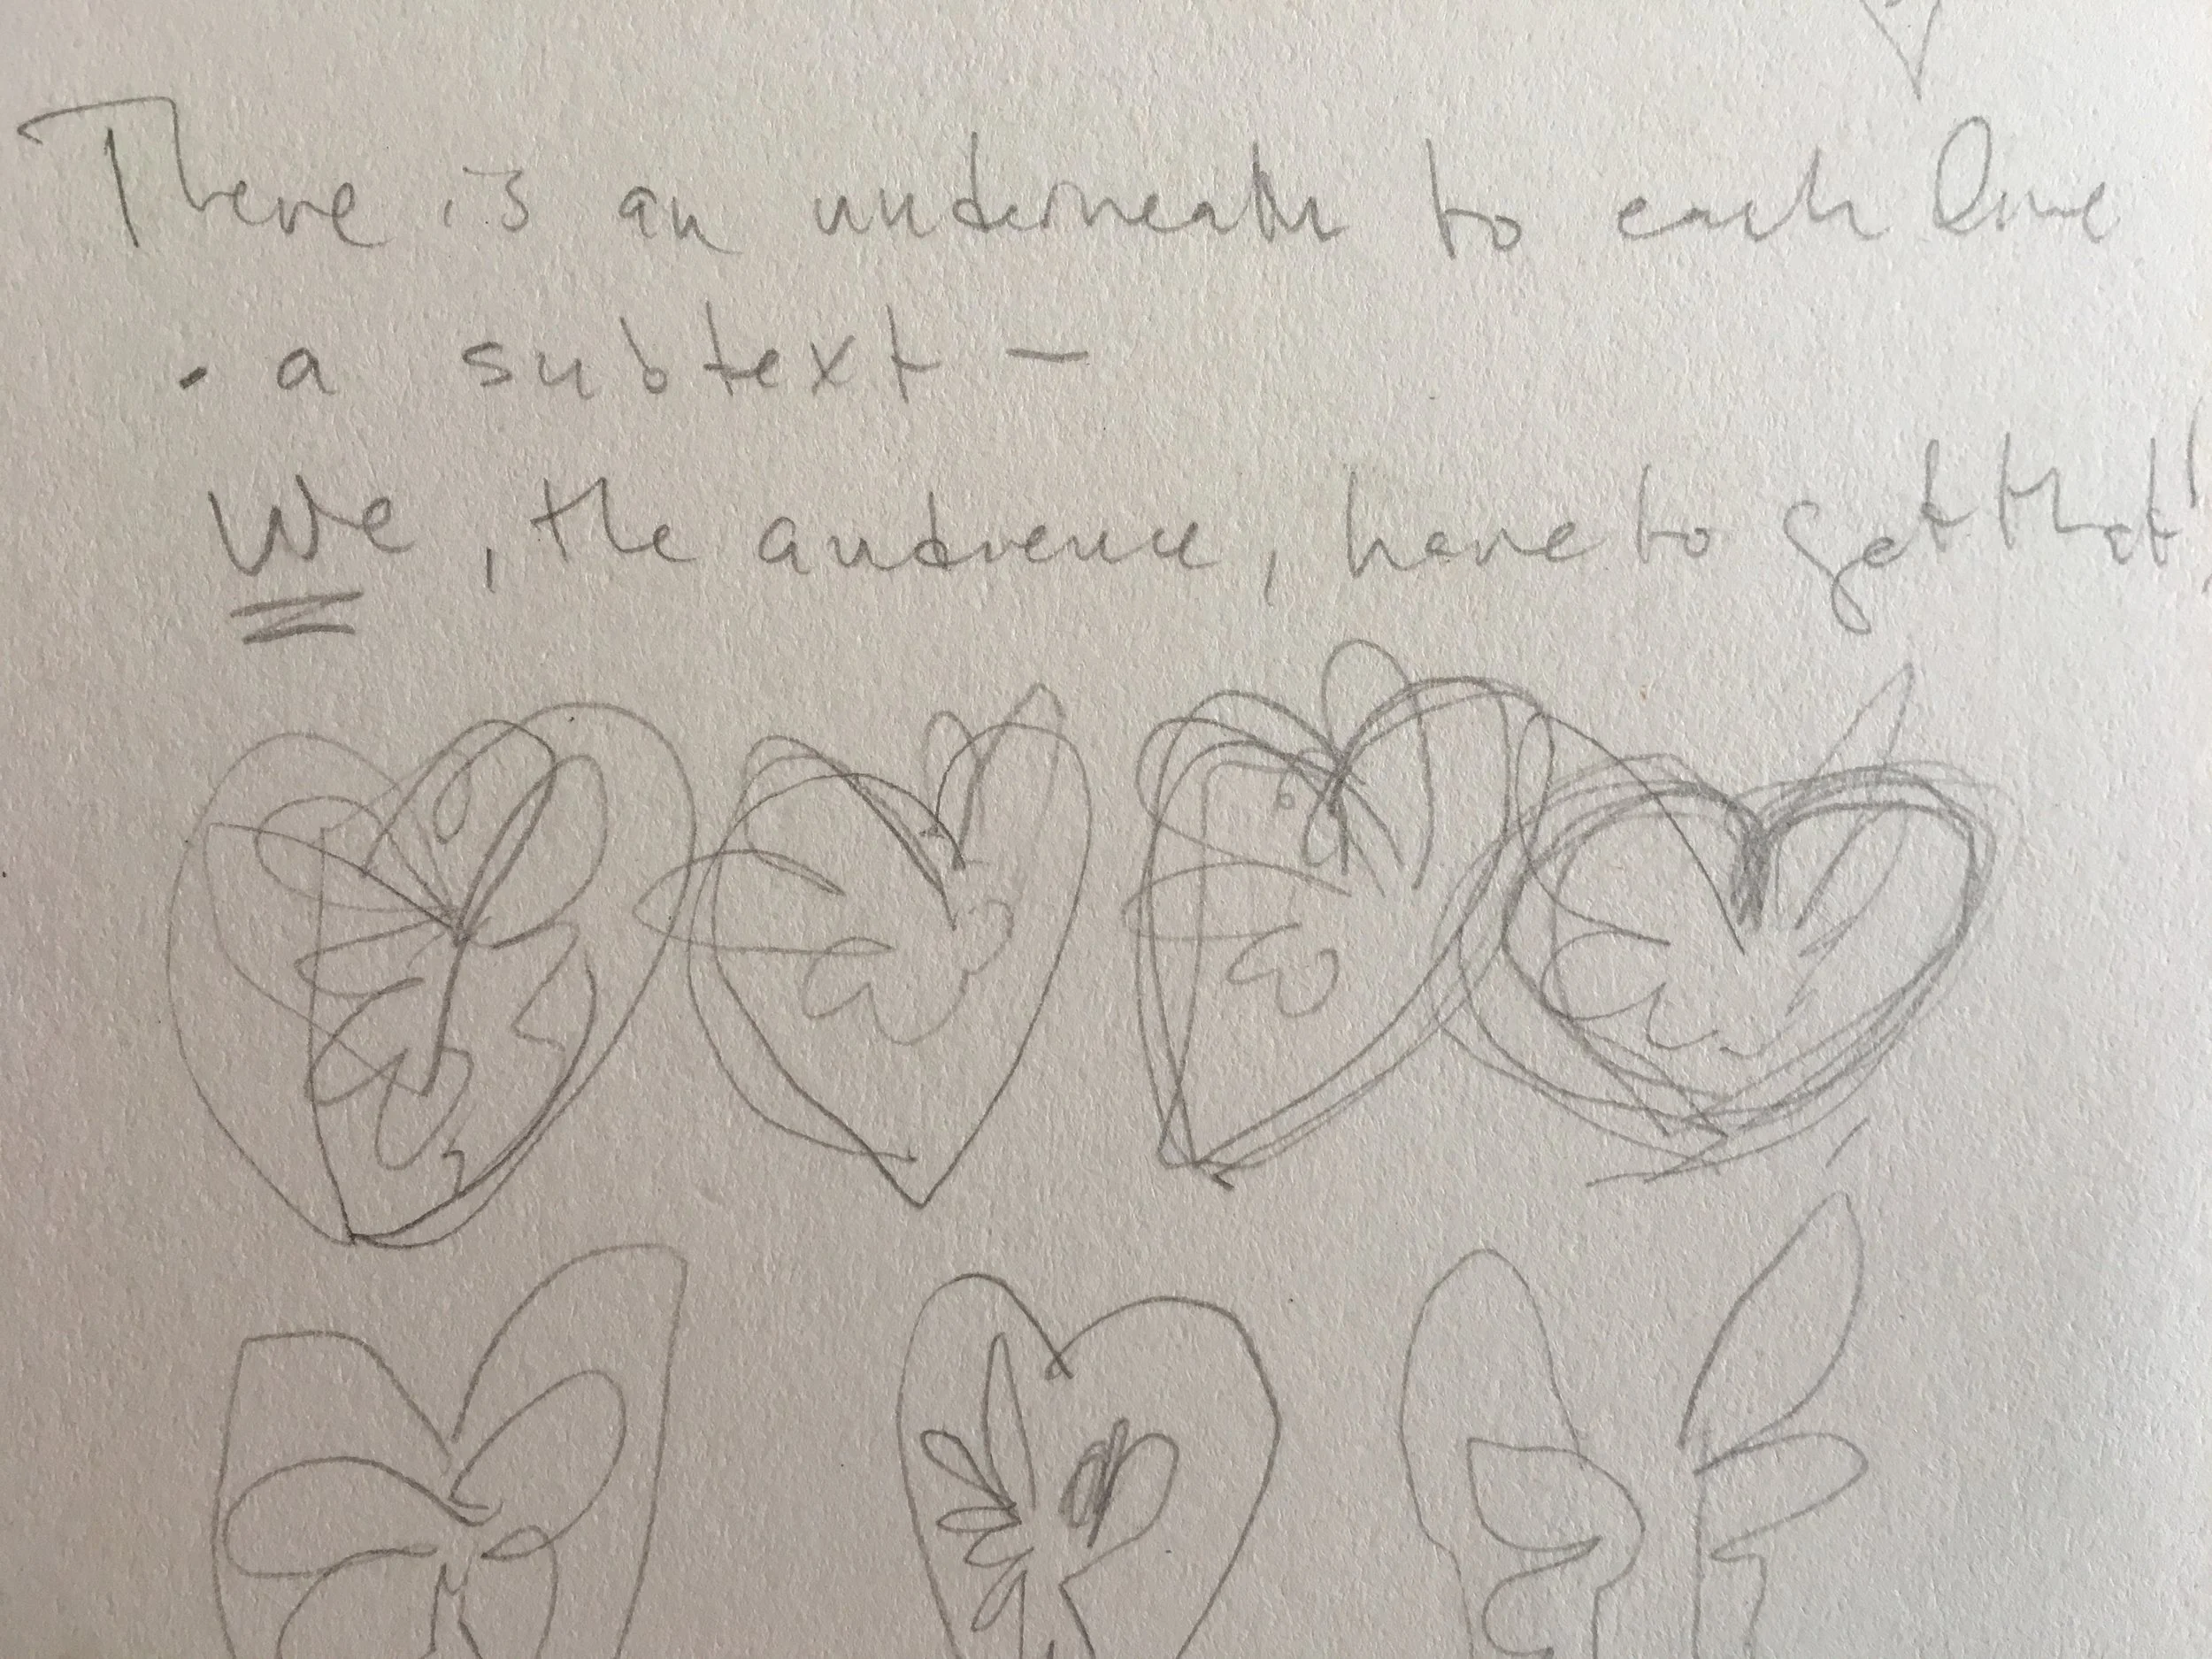 There is an underneath to each line
- a subtext -
We, the audience, have to get that!